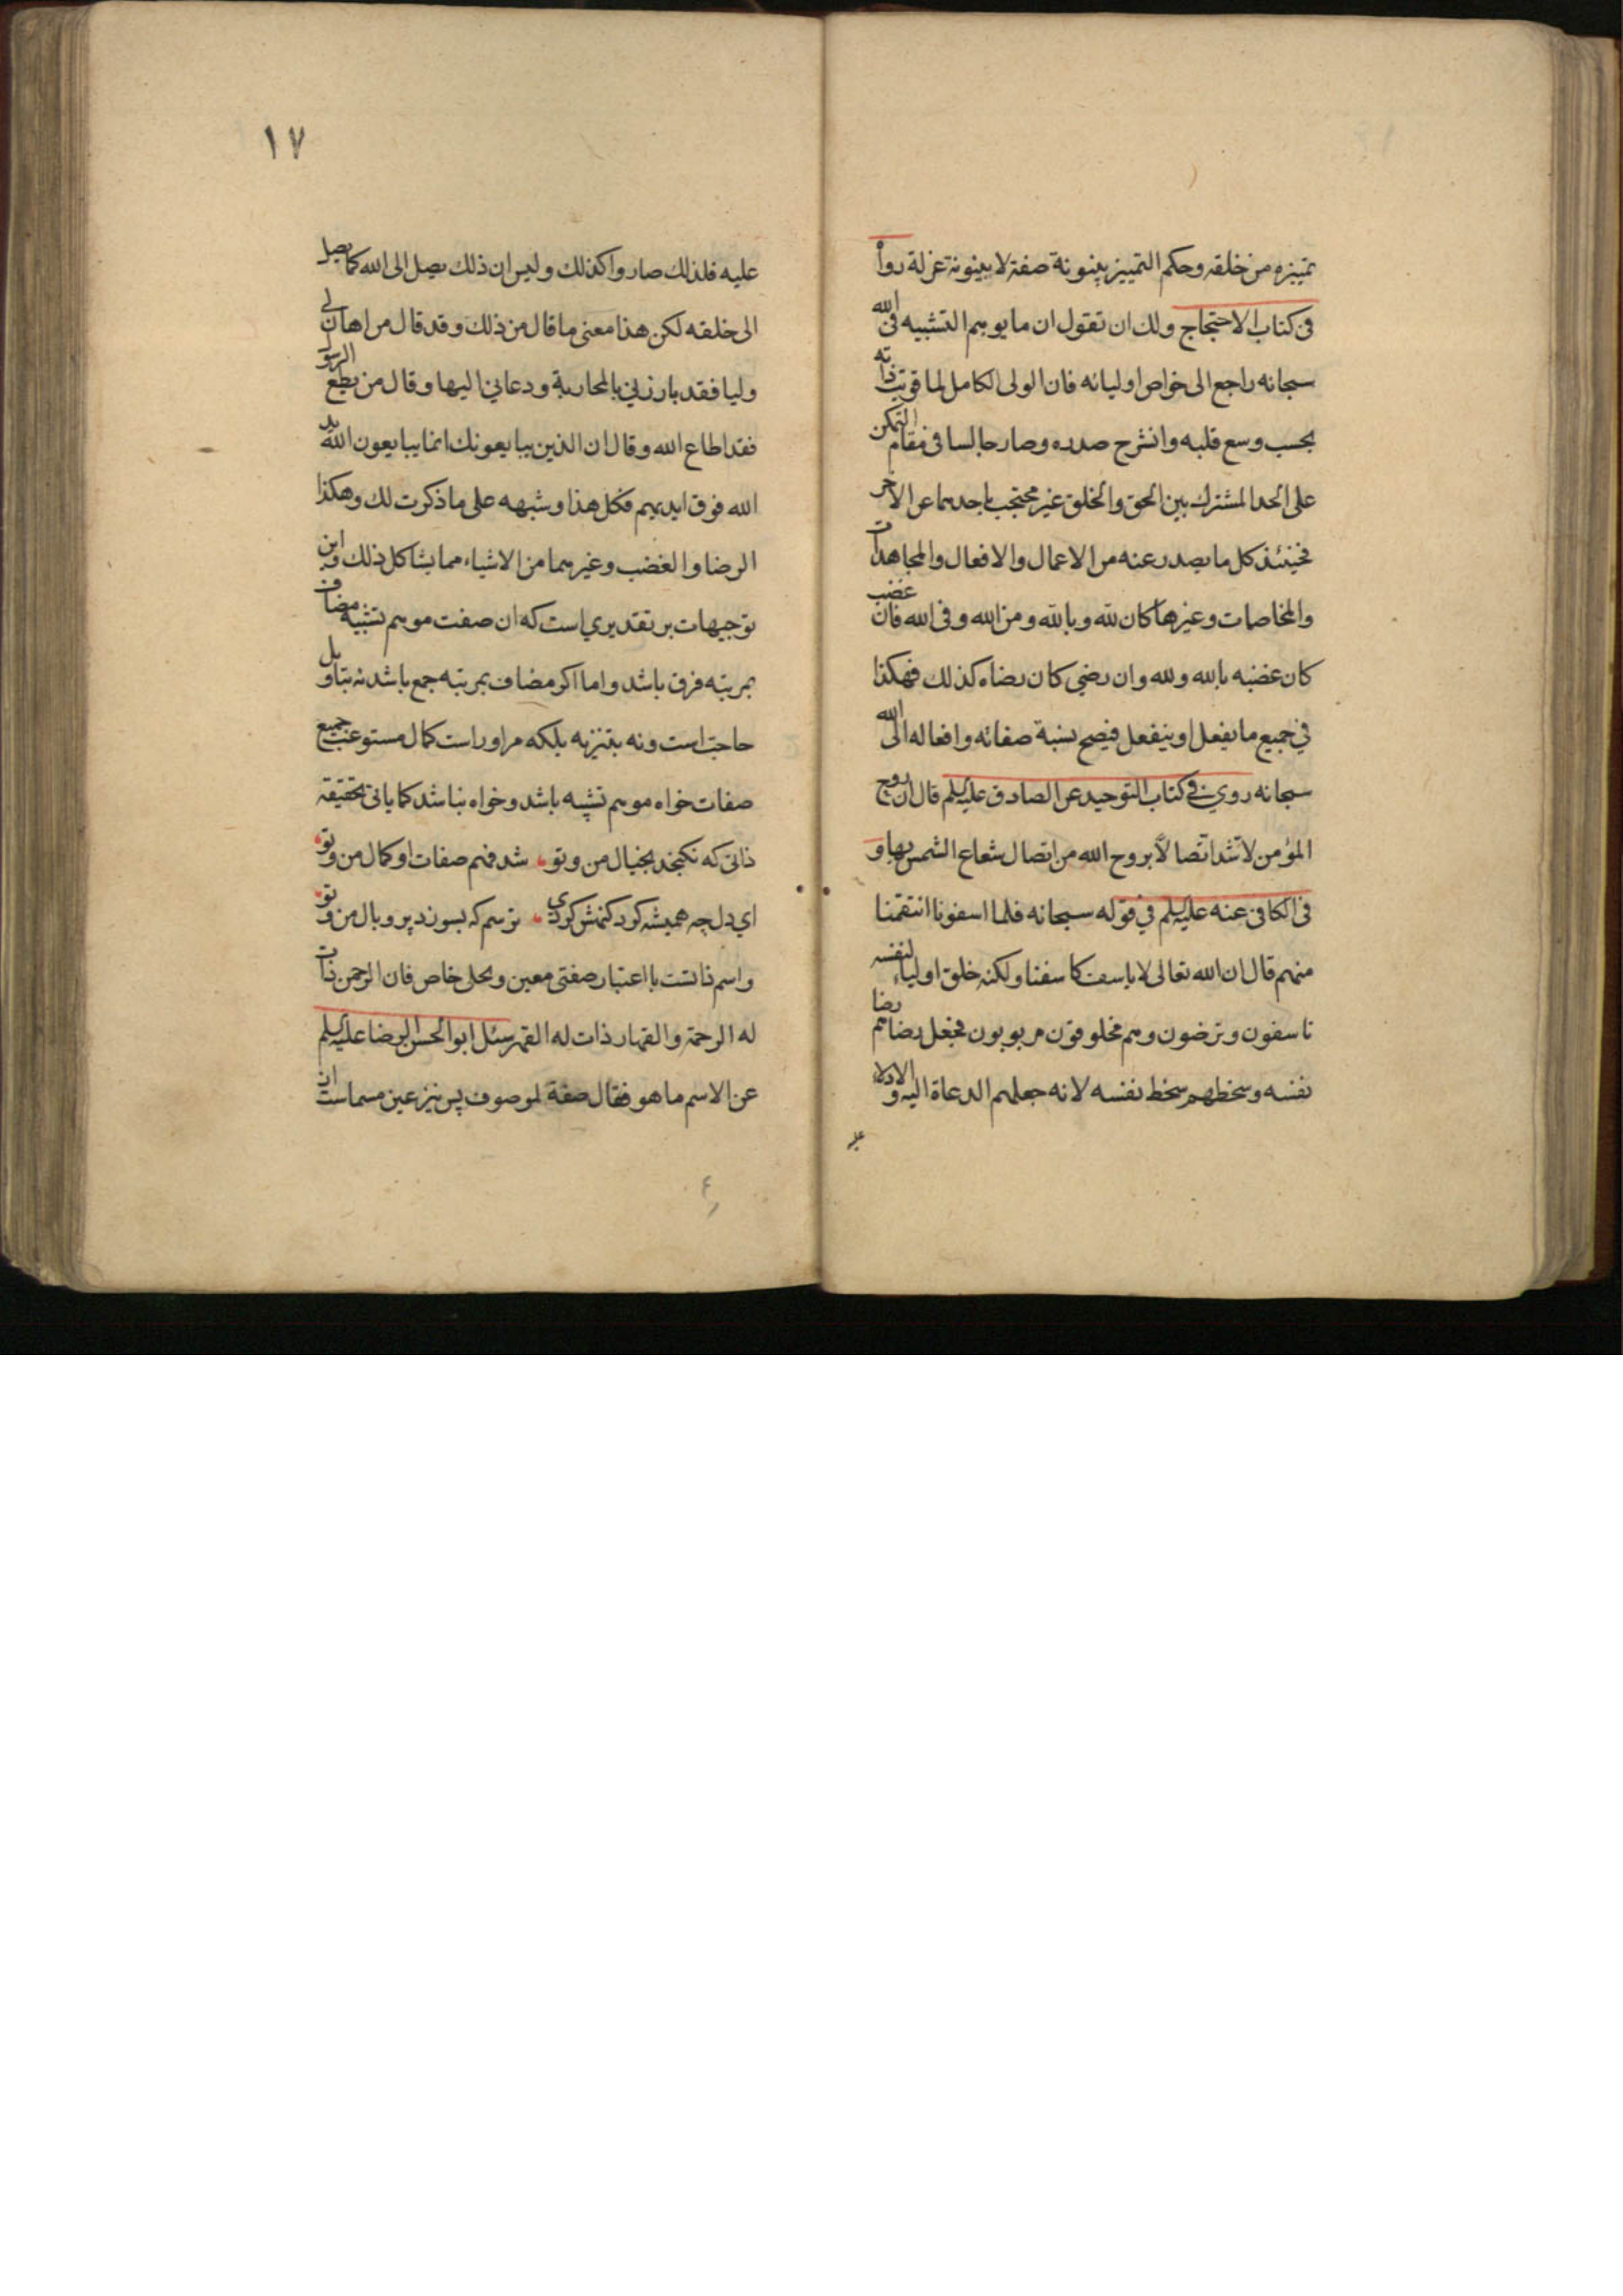 تمييزه من خلقه وحكم التمييز بينونة صفة لا بينونة عزلة رواه
فی كتاب الاحتجاج ولك ان تقول ان ما يوهم التشبيه فی الله
سبحانه راجع الی خواص اوليائه فان الولی الكامل لما قويت ذاته
بحسب وسع قلبه وانشرح صدره وصار جالسا فی مقام التمكن
علی الحد المشترك بين الحق والخلق غير محتجب باحدهما عن الاخر
فحينئذ كل ما يصدر عنه من الاعمال والافعال والمجاهدات
والمخاصمات وغيرها كان لله وبالله ومن الله وفی الله فان غضب
كان غضبه بالله ولله وان رضي كان رضاه كذلك فهكذا
في جميع ما يفعل او ينفعل فيصح نسبة صفاته وافعاله الی الله
سبحانه روي في كتاب التوحيد عن الصادق عليه السلم قال ان روح
المؤمن لاشد اتصالا بروح الله من اتصال شعاع الشمس بها و
فی الكافی عنه عليه السلم في قوله سبحانه فلما اسفونا انتقمنا
منهم قال ان الله تعالی لا ياسف كاسفنا ولكنه خلق اولياء لنفسه
ياسفون ويرضون وهم مخلوقون مربوبون فجعل رضاهم رضا
نفسه وسخطهم سخط نفسه لانه جعلهم الدعاة اليه و الادلاء
۱۷
عليه فلذلك صاروا كذلك وليس ان ذلك يصل الی الله كما يصل
الی خلقه لكن هذا معنی ما قال من ذلك وقد قال من اهان لي
وليا فقد بارزني بالمحاربة ودعاني اليها وقال من يطع الرسول
فقد اطاع الله وقال ان الذين يبايعونك انما يبايعون الله يد
الله فوق ايديهم فكل هذا وشبهه علی ما ذكرت لك وهكذا
الرضا والغضب وغيرهما من الاشياء مما يشاكل ذلك واين
توجيهات بر تقديري است كه ان صفت موهم تشبيه مضاف
بمرتبه فرق باشد و اما اكر مضاف بمرتبه جمع باشد نه بتاويل
حاجت است و نه بتنزيه بلكه مر او راست كمال مستوعب جميع
صفات خواه موهم تشبيه باشد و خواه نباشد كما ياتی تحقيقه
ذاتی كه نكنجد بخيال من و تو شد فهم صفات او كمال من و تو
اي دل چه هميشه كرد كنهش كردي ترسم كه بسوزد پر و بال من و تو
و اسم ذاتست با اعتبار صفتی معين و تجلی خاص فان الرحمن ذات
له الرحمة والقهار ذات له القهر سئل ابو الحسن الرضا عليه السلم
عن الاسم ما هو فقال صفة لموصوف پس نيز عين مسماست ان